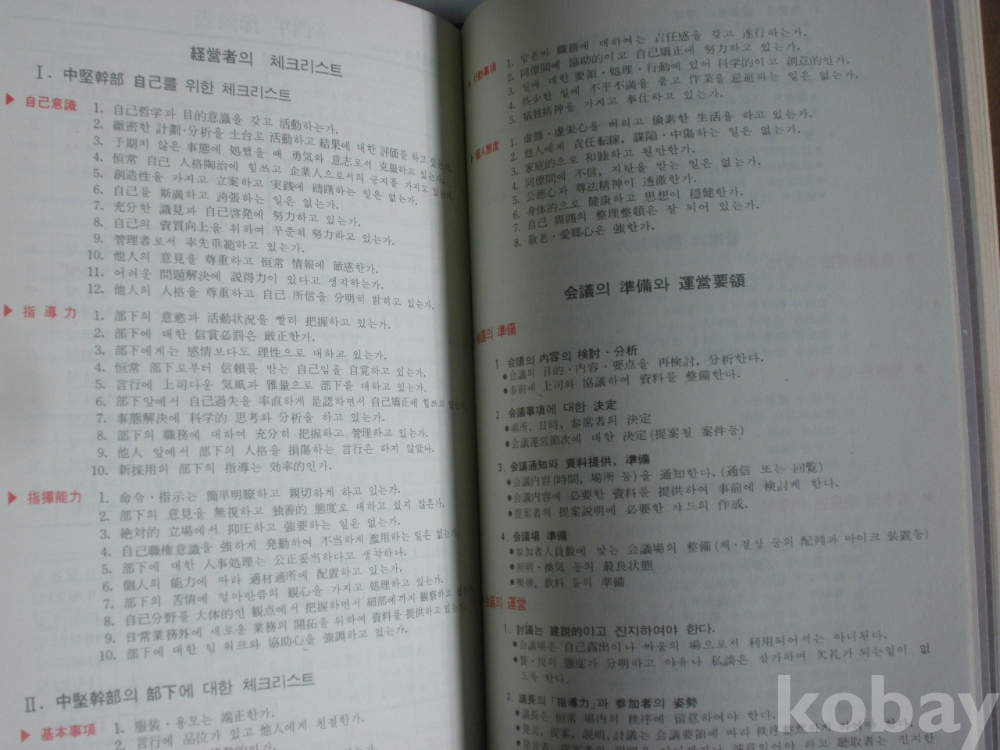 経営者의 체크리스트
Ⅰ. 中堅幹部 自己를 위한 체크리스트
▶ 自己意識
1. 自己哲学과 目的意識을 갖고 活動하는가.
2. 緻密한 計劃·分析을 土台로 活動하고 結果에 대한 評価를 하고 있는가.
3. 予期지 않은 事態에 処했을 때 勇気와 意志로서 克服하고 있는가.
4. 恒常 自己 人格陶冶에 힘쓰고 企業人으로서의 긍지를 가지고 있는가.
5. 創造性을 가지고 立案하고 実践에 躊躇하는 일은 없는가.
6. 自己를 斯満하고 誇張하는 일은 없는가.
7. 充分한 識見과 自己啓発에 努力하고 있는가.
8. 自己의 資質向上을 위하여 꾸준히 努力하고 있는가.
9. 管理者로서 率先垂範하고 있는가.
10. 他人의 意見을 尊重하고 恒常 情報에 敏感한가.
11. 어려운 問題解決에 説得力이 있다고 생각하는가.
12. 他人의 人格을 尊重하고 自己 所信을 分明히 밝히고 있는가.
▶ 指導力
1. 部下의 意慾과 活動状況을 빨리 把握하고 있는가.
2. 部下에 대한 信賞必罰은 厳正한가.
3. 部下에게는 感情보다도 理性으로 대하고 있는가.
4. 恒常 部下로부터 信頼를 받는 自己임을 自覚하고 있는가.
5. 言行에 上司다운 気風과 雅量으로 部下를 대하고 있는가.
6. 部下앞에서 自己過失을 率直하게 是認하면서 自己矯正에 힘쓰고 있는가.
7. 事態解決에 科学的 思考와 分析을 하고 있는가.
8. 部下의 職務에 대하여 充分히 把握하고 管理하고 있는가.
9. 他人 앞에서 部下의 人格을 損傷하는 言行은 하지 않았나.
10. 新採用의 部下의 指導는 効率的인가.
▶ 指揮能力
1. 命令·指示는 簡単明瞭하고 親切하게 하고 있는가.
2. 部下의 意見을 無視하고 独善的 態度로 대하고 있지 않은가.
3. 絶対的 立場에서 抑圧하고 強要하는 일은 없는가.
4. 自己職権意識을 強하게 発動하여 不当하게 濫用하는 일은 없는가.
5. 部下에 대한 人事処理는 公正妥当하다고 생각하나.
6. 個人의 能力에 따라 適材適所에 配置하고 있는가.
7. 部下의 苦情에 얼마만큼의 観心을 가지고 処理하고 있는가.
8. 自己分野를 大体的인 観点에서 把握하면서 細部에까지 観察하고
9. 日常業務外에 새로운 業務의 開拓을 위하여 資料를 提供하고 있는가.
10. 部下에 대한 팀 워크와 協助心을 強調하고 있는가.
Ⅱ. 中堅幹部의 部下에 대한 체크리스트
▶ 基本事項
1. 服装·용모는 端正한가.
2. 言行에 品位가 있고 他人에게 친절한가.
▶ 行動事項
1. 맡은바 職務에 대하여는 責任感을 갖고 遂行하는가.
2. 同僚間에 協助的이고 自己矯正에 努力하고 있는가.
3. 일에 대한 要領·処理·行動에 있어 科学的이고 創意的인가.
4. 些少한 일에 不平不満을 품고 作業을 忌避하는 일은 없는가.
5. 犠牲精神을 가지고 奉仕하고 있는가.
▶ 個人態度
1. 虚飾·虚栄心을 버리고 倹素한 生活을 하고 있는가.
2. 他人에게 責任転嫁, 謀陥·中傷하는 일은 없는가.
3. 家庭的으로 和睦하고 원만한가.
4. 同僚間에 不信, 지탄을 받는 일은 없는가.
5. 公徳心과 尊法精神이 透徹한가.
6. 身体的으로 健康하고 思想이 穏健한가.
7. 自己 周囲의 整理整頓은 잘 되어 있는가.
8. 敬老·愛郷心은 強한가.
会議의 準備와 運営要領
会議의 準備
1 会議의 内容의 検討·分析
●会議의 目的·内容·要点을 再検討, 分析한다.
●事前에 上司와 協議하여 資料를 整備한다.
2. 会議事項에 대한 決定
●場所, 日時, 参席者의 決定
●会議運営節次에 대한 決定(提案및 案件等)
3. 会議通知와 資料提供, 準備
●会議内容(時間, 場所 等)을 通知한다. (通信 또는 回覧)
●会議内容에 必要한 資料를 提供하여 事前에 検討케 한다.
●提案者의 提案説明에 必要한 차드의 作成.
4. 会議場 準備
●参加者人員数에 맞는 会議場의 整備(책·걸상 등의 配列과 마이크 装置등)
●照明·換気 등의 最良状態
●喫煙, 飲料 등의 準備
会議의 運営
1. 討議는 建設的이고 진지하여야 한다.
●会議場은 自己露出이나 싸움의 場으로서 利用되어서는 아니된다.
●賛·反의 態度가 分明하고 야유나 私談은 삼가하여 欠礼가 되는일이 없도록 한다.
2. 議長의「指導力」과 参加者의 姿勢
●議長은 恒常 場内의 秩序에 留意하여야 한다.
●発言, 提案, 説明, 討議는 会議要領에 따라
kobay